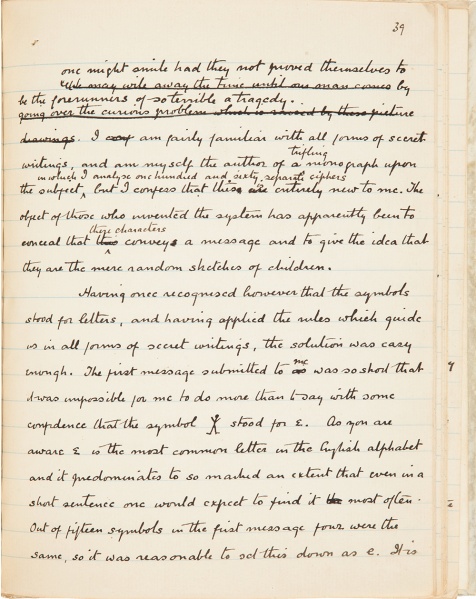 39
one might smile had they not proved themselves to
We may wile away the time until our man comes by
be the forerunners of so terrible a tragedy.
going over the curious problem which is raised by these picture
drawings. I am fairly familiar with all forms of secret
trifling
writings, and am myself the author of a monograph upon
in which I analyse one hundred and sixty separate ciphers
the subject, but I confess that this is entirely new to me. The
object of those who invented the system has apparently been to
these characters
conceal that this conveys a message and to give the idea that
they are the mere random sketches of children.
Having once recognised however that the symbols
stood for letters, and having applied the rules which guide
us in all forms of secret writings, the solution was easy
enough. The first message submitted to me was so short that
it was impossible for me to do more than to say with some
confidence that the symbol stood for E. As you are
aware E is the most common letter in the English alphabet
and it predominates to so marked an extent that even in a
short sentence one would expect to find it most often.
Out of fifteen symbols in the first message four were the
same, so it was reasonable to set this down as e. It is